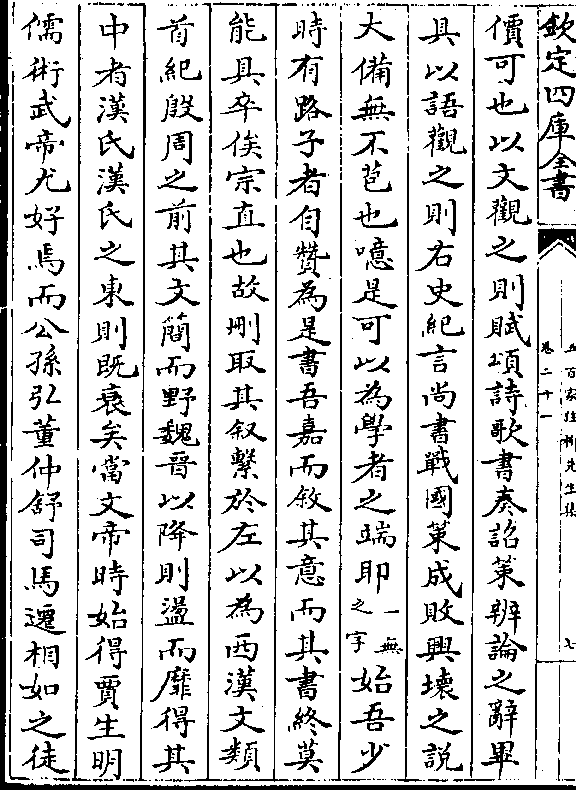 欽定四庫全書
五百家注柳先生集
卷二十一
七
價可也以文觀之則賦頌詩歌書奏詔策辨論之辭畢
具以語觀之則右史紀言尚書戰國策成敗興壞之說
大備無不苞也噫是可以為學者之端耶一無之字始吾少
時有路子者自贊為是書吾嘉而敘其意而其書終莫
能具卒俟宗直也故刪取其叙繫於左以為西漢文類
首紀殷周之前其文簡而野魏晉以降則盪而靡得其
中者漢氏漢氏之東則既衰矣當文帝時始得賈生明
儒術武帝尤好焉而公孫弘董仲舒司馬遷相如之徒